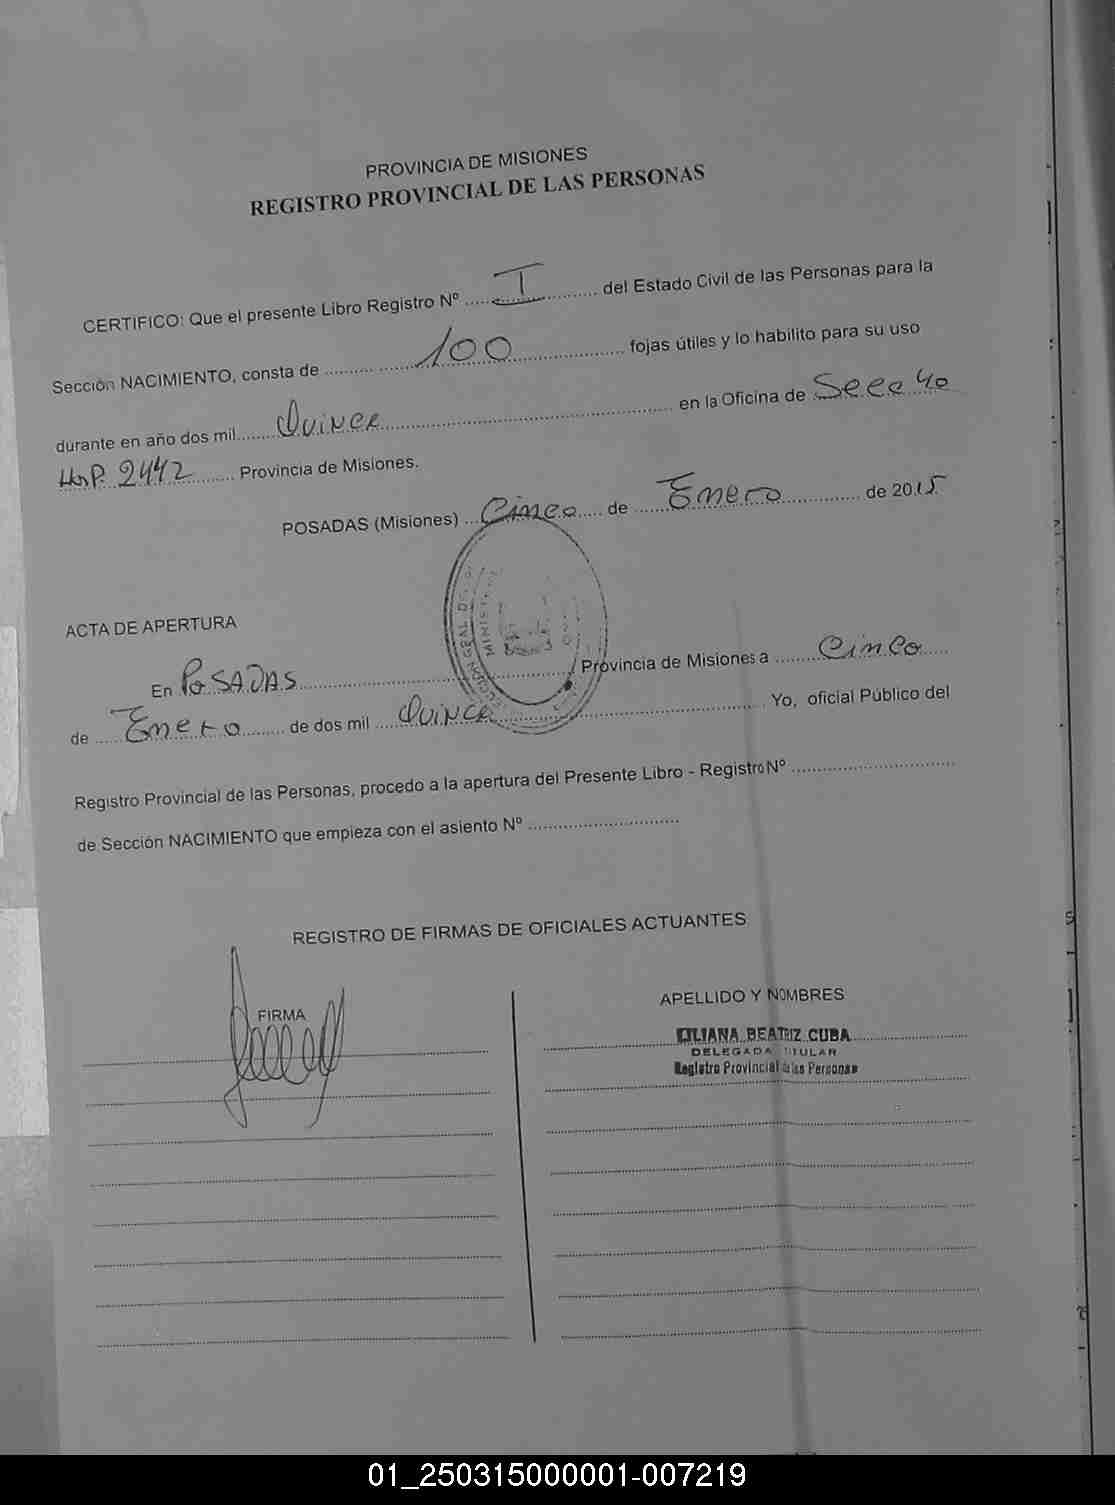 PROVINCIA DE MISIONES
REGISTRO PROVINCIAL DE LAS PERSONAS
CERTIFICO: Que el presente Libro Registro Nº I del Estado Civil de las Personas para la
Sección NACIMIENTO, consta de 100 fojas útiles y lo habilito para su uso
durante en año dos mil Quince en la Oficina de Secc 40
Hosp. 2442 Provincia de Misiones.
POSADAS (Misiones) Cinco de Enero de 2015
ACTA DE APERTURA
En POSADAS Provincia de Misiones a Cinco
de Enero de dos mil Quince Yo, oficial Público del
Registro Provincial de las Personas, procedo a la apertura del Presente Libro - Registro Nº
de Sección NACIMIENTO que empieza con el asiento Nº
REGISTRO DE FIRMAS DE OFICIALES ACTUANTES
FIRMA
APELLIDO Y NOMBRES
LILIANA BEATRIZ CUBA
DELEGADA TITULAR
Registro Provincial de las Personas
01_250315000001-007219